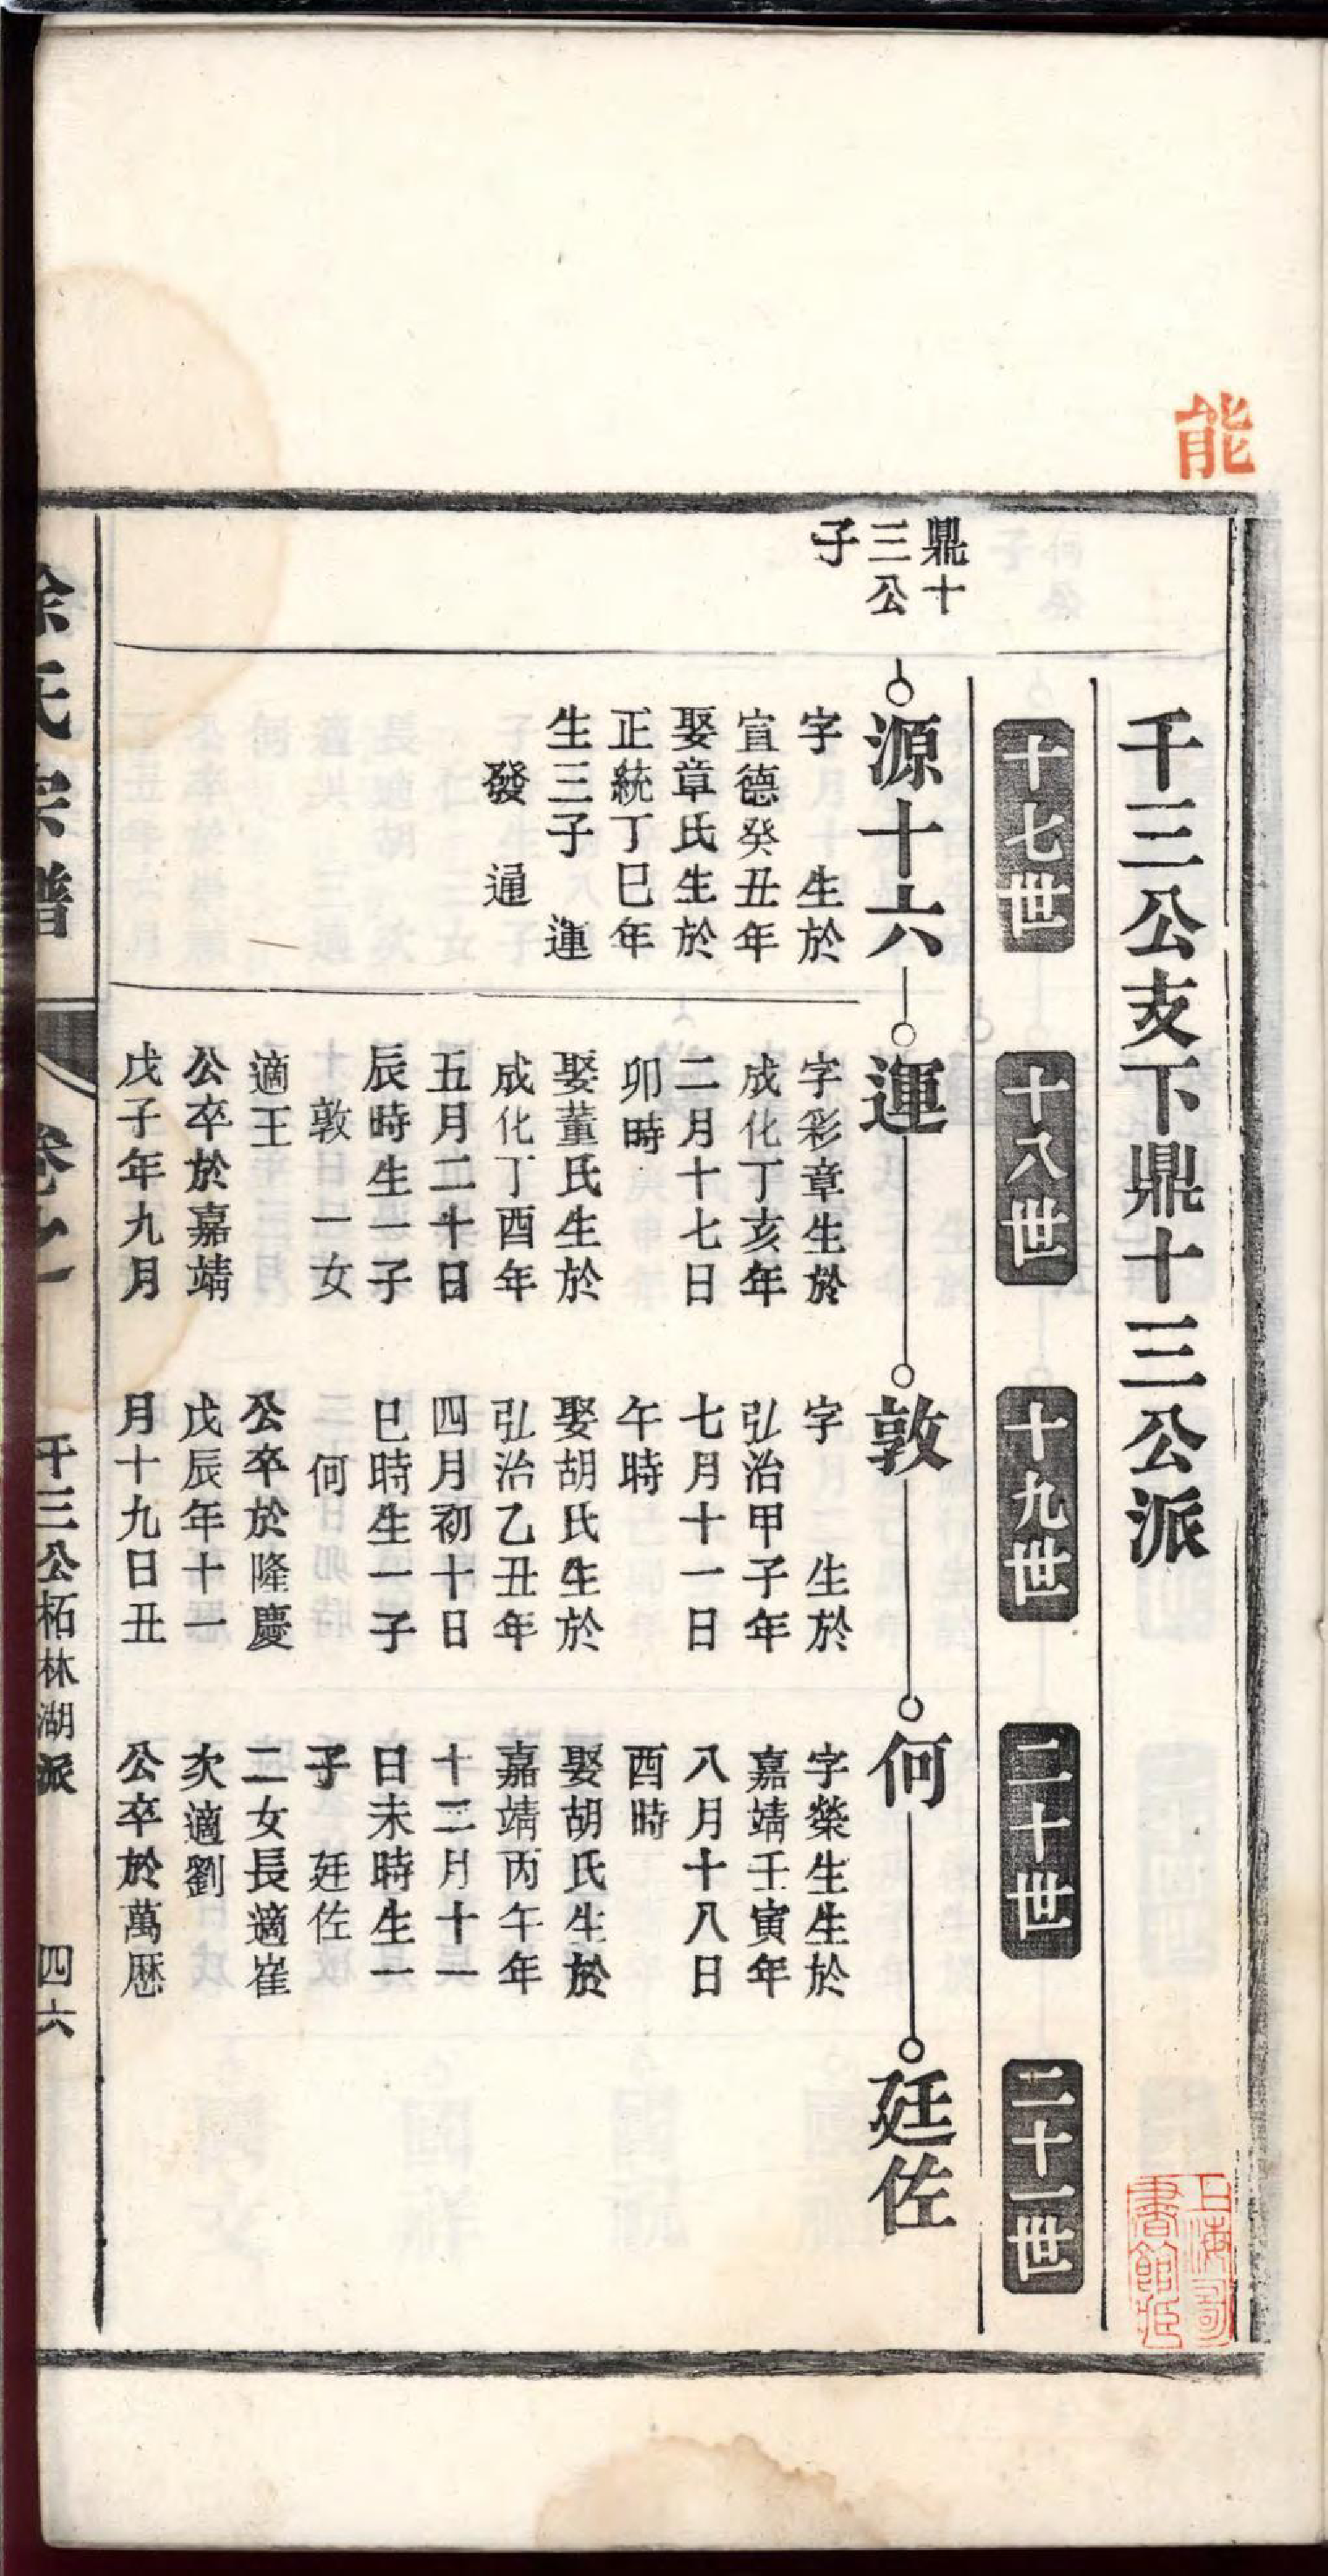 能
千三公支下鼎十三公派
上海圖書館藏
十七世
十八世
十九世
二十世
二十一世
鼎十
三公
子
源十六
字　生於
宣德癸丑年
娶章氏生於
正統丁巳年
生三子　運
發　通
運
字彩章生於
成化丁亥年
二月十七日
卯時
娶董氏生於
成化丁酉年
五月二十日
辰時生一子
敦　一女
適王
公卒於嘉靖
戊子年九月
敦
字　生於
弘治甲子年
七月十一日
午時
娶胡氏生於
弘治乙丑年
四月初十日
巳時生一子
何
公卒於隆慶
戊辰年十一
月十九日丑
何
字榮生生於
嘉靖壬寅年
八月十八日
酉時
娶胡氏生於
嘉靖丙午年
十二月十一
日未時生一
子　廷佐
二女長適崔
次適劉
公卒於萬厯
廷佐
氏宗譜
千三公柘林湖派
四六